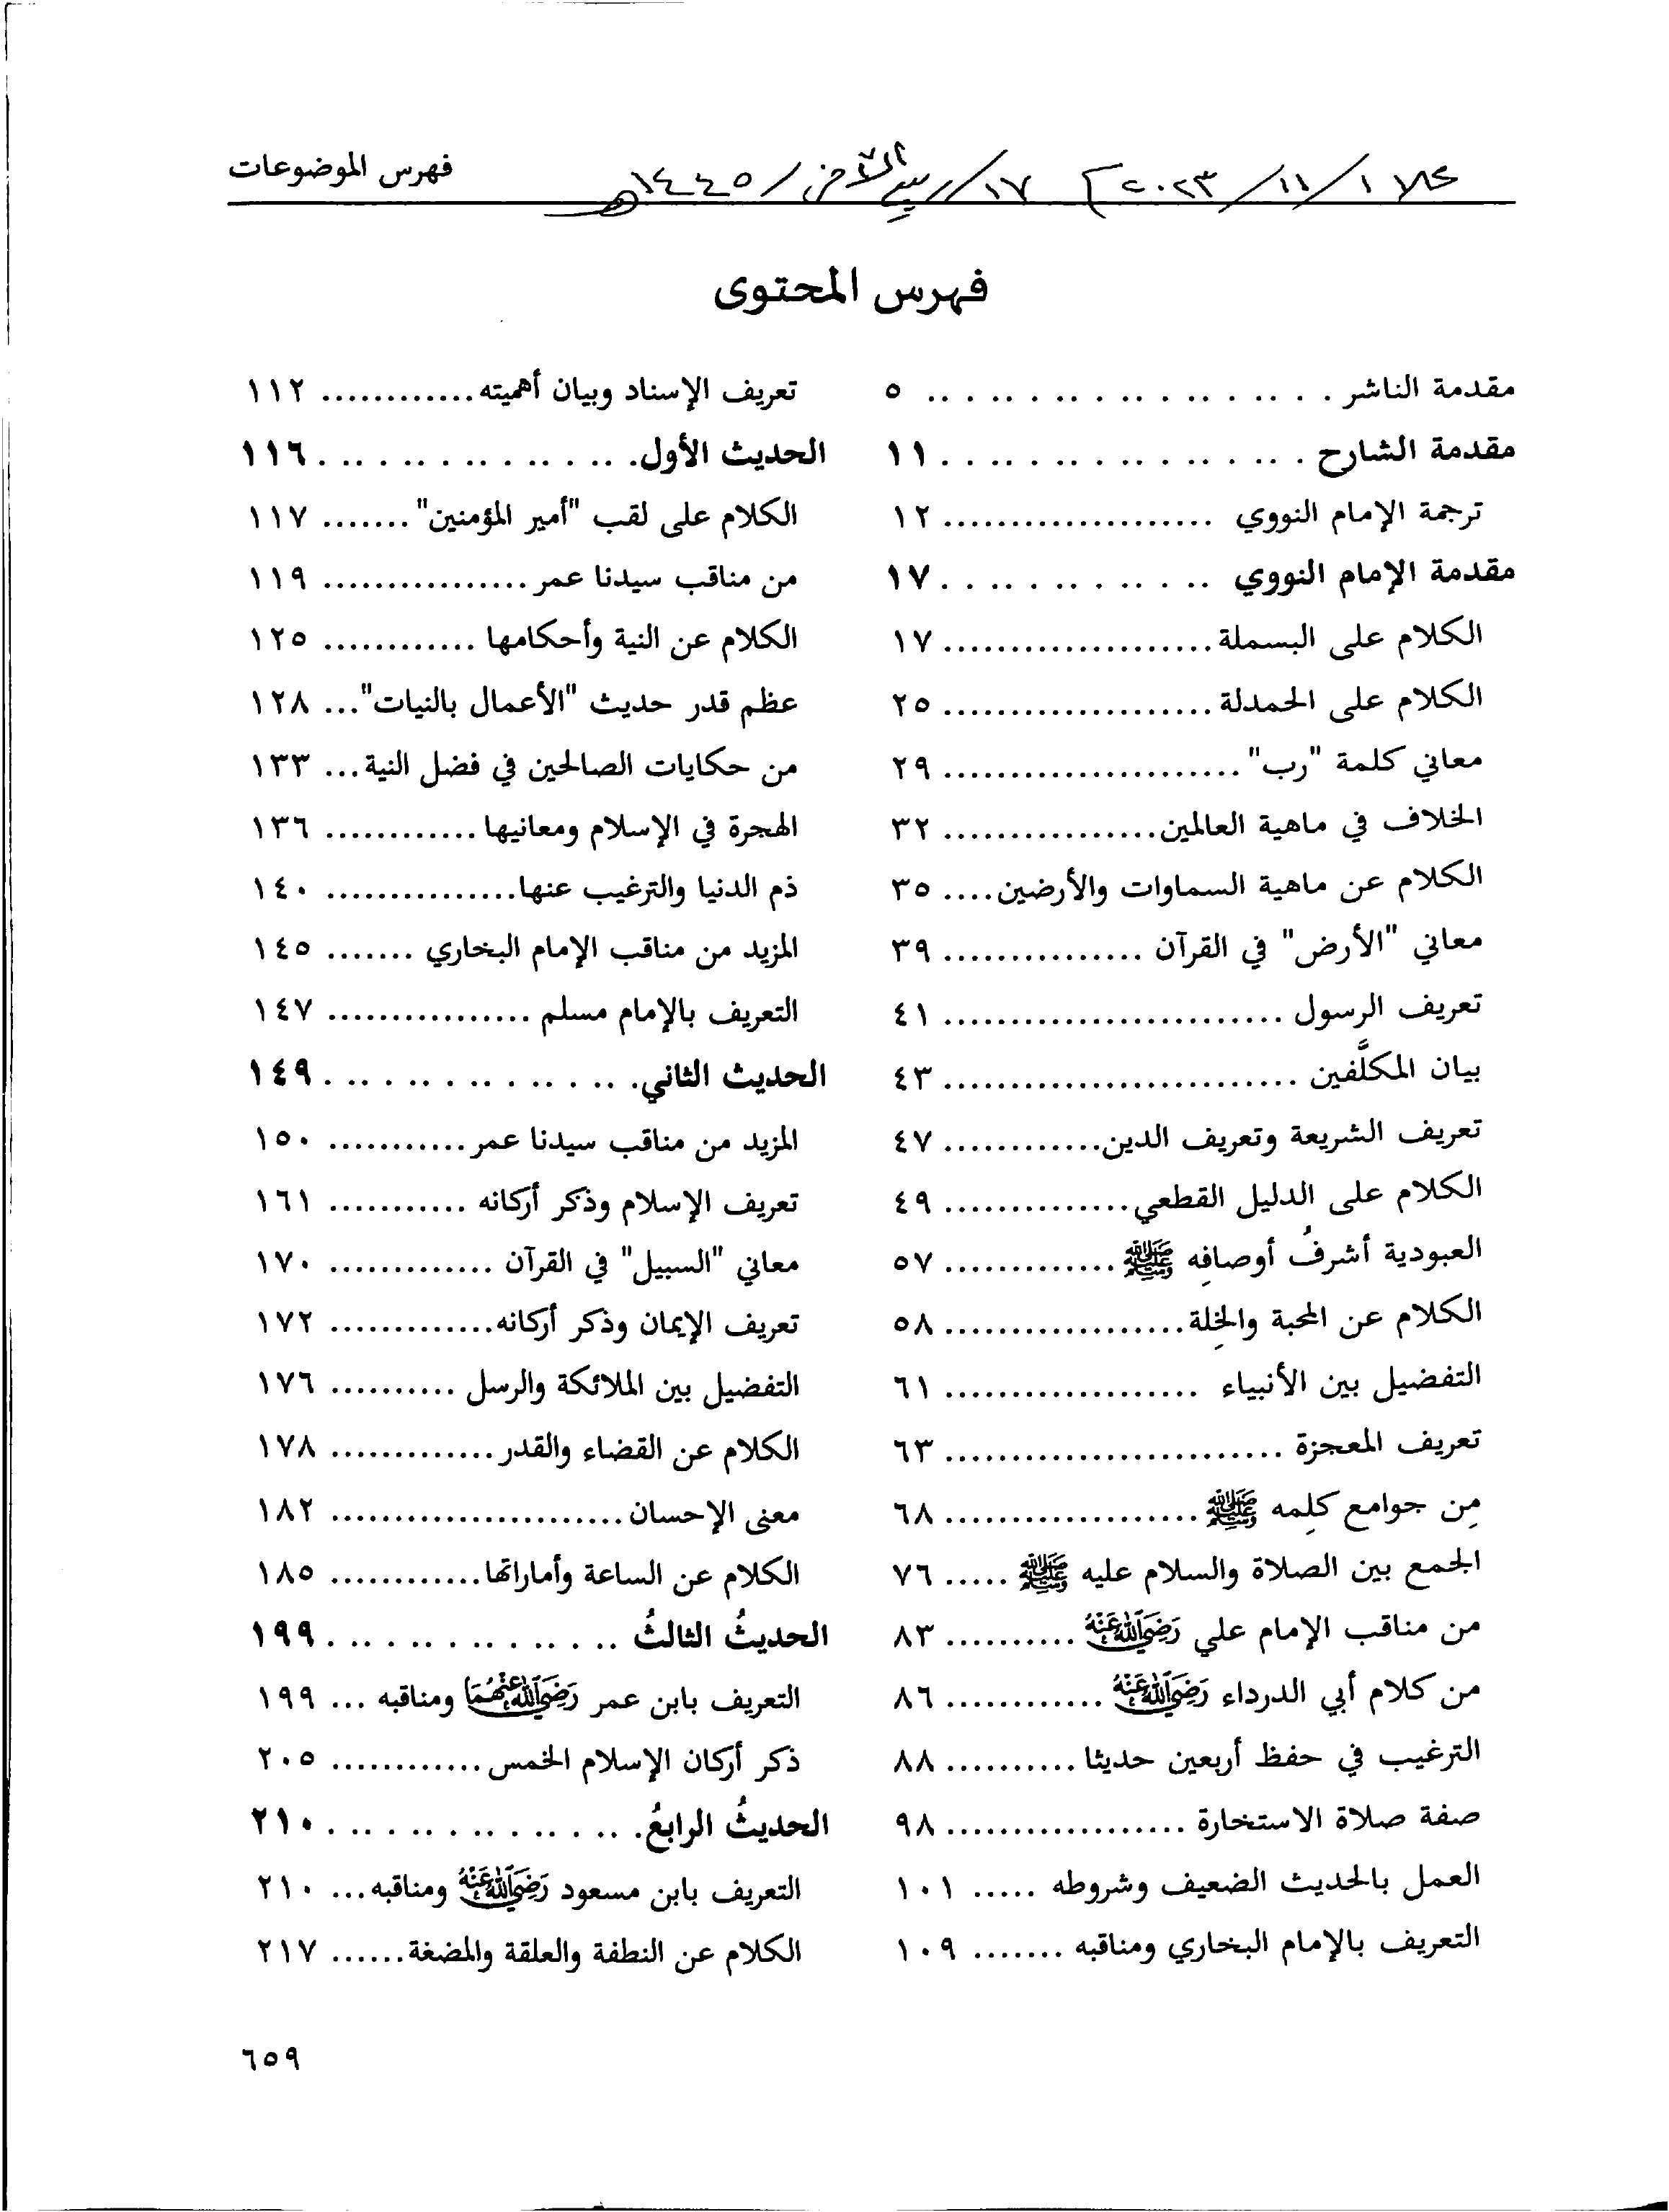 فهرس الموضوعات
١/١١/٢٠٢٣م ١٧/ربيع الآخر/١٤٤٥هـ
فهرس المحتوى
مقدمة الناشر . . . . . . . . . . . . . . . . ٥
مقدمة الشارح . . . . . . . . . . . . . . . ١١
ترجمة الإمام النووي .................... ١٢
مقدمة الإمام النووي . . . . . . . . . . . ١٧
الكلام على البسملة .................... ١٧
الكلام على الحمدلة .................... ٢٥
معاني كلمة "رب" ...................... ٢٩
الخلاف في ماهية العالمين ................ ٣٢
الكلام عن ماهية السماوات والأرضين .... ٣٥
معاني "الأرض" في القرآن ............... ٣٩
تعريف الرسول ......................... ٤١
بيان المكلَّفين .......................... ٤٣
تعريف الشريعة وتعريف الدين ............ ٤٧
الكلام على الدليل القطعي .............. ٤٩
العبودية أشرفُ أوصافِه ﷺ ............. ٥٧
الكلام عن المحبة والخِلة .................. ٥٨
التفضيل بين الأنبياء ................... ٦١
تعريف المعجزة ......................... ٦٣
مِن جوامع كلِمه ﷺ ................... ٦٨
الجمع بين الصلاة والسلام عليه ﷺ ..... ٧٦
من مناقب الإمام علي رَضِيَ اللَّهُ عَنْهُ .......... ٨٣
من كلام أبي الدرداء رَضِيَ اللَّهُ عَنْهُ ............ ٨٦
الترغيب في حفظ أربعين حديثا .......... ٨٨
صفة صلاة الاستخارة .................. ٩٨
العمل بالحديث الضعيف وشروطه ..... ١٠١
التعريف بالإمام البخاري ومناقبه ....... ١٠٩
تعريف الإسناد وبيان أهميته ............ ١١٢
الحديث الأول . . . . . . . . . . . . . ١١٦
الكلام على لقب "أمير المؤمنين" ....... ١١٧
من مناقب سيدنا عمر ................ ١١٩
الكلام عن النية وأحكامها ............ ١٢٥
عظم قدر حديث "الأعمال بالنيات" ... ١٢٨
من حكايات الصالحين في فضل النية ... ١٣٣
الهجرة في الإسلام ومعانيها ............ ١٣٦
ذم الدنيا والترغيب عنها ............... ١٤٠
المزيد من مناقب الإمام البخاري ....... ١٤٥
التعريف بالإمام مسلم ................ ١٤٧
الحديث الثاني . . . . . . . . . . . . . ١٤٩
المزيد من مناقب سيدنا عمر ........... ١٥٠
تعريف الإسلام وذكر أركانه ........... ١٦١
معاني "السبيل" في القرآن ............. ١٧٠
تعريف الإيمان وذكر أركانه ............. ١٧٢
التفضيل بين الملائكة والرسل .......... ١٧٦
الكلام عن القضاء والقدر ............. ١٧٨
معنى الإحسان ....................... ١٨٢
الكلام عن الساعة وأماراتها ............ ١٨٥
الحديثُ الثالثُ . . . . . . . . . . . . ١٩٩
التعريف بابن عمر رَضِيَ اللَّهُ عَنْهُمَا ومناقبه ... ١٩٩
ذكر أركان الإسلام الخمس ............ ٢٠٥
الحديثُ الرابعُ . . . . . . . . . . . . . ٢١٠
التعريف بابن مسعود رَضِيَ اللَّهُ عَنْهُ ومناقبه ... ٢١٠
الكلام عن النطفة والعلقة والمضغة ...... ٢١٧
٦٥٩